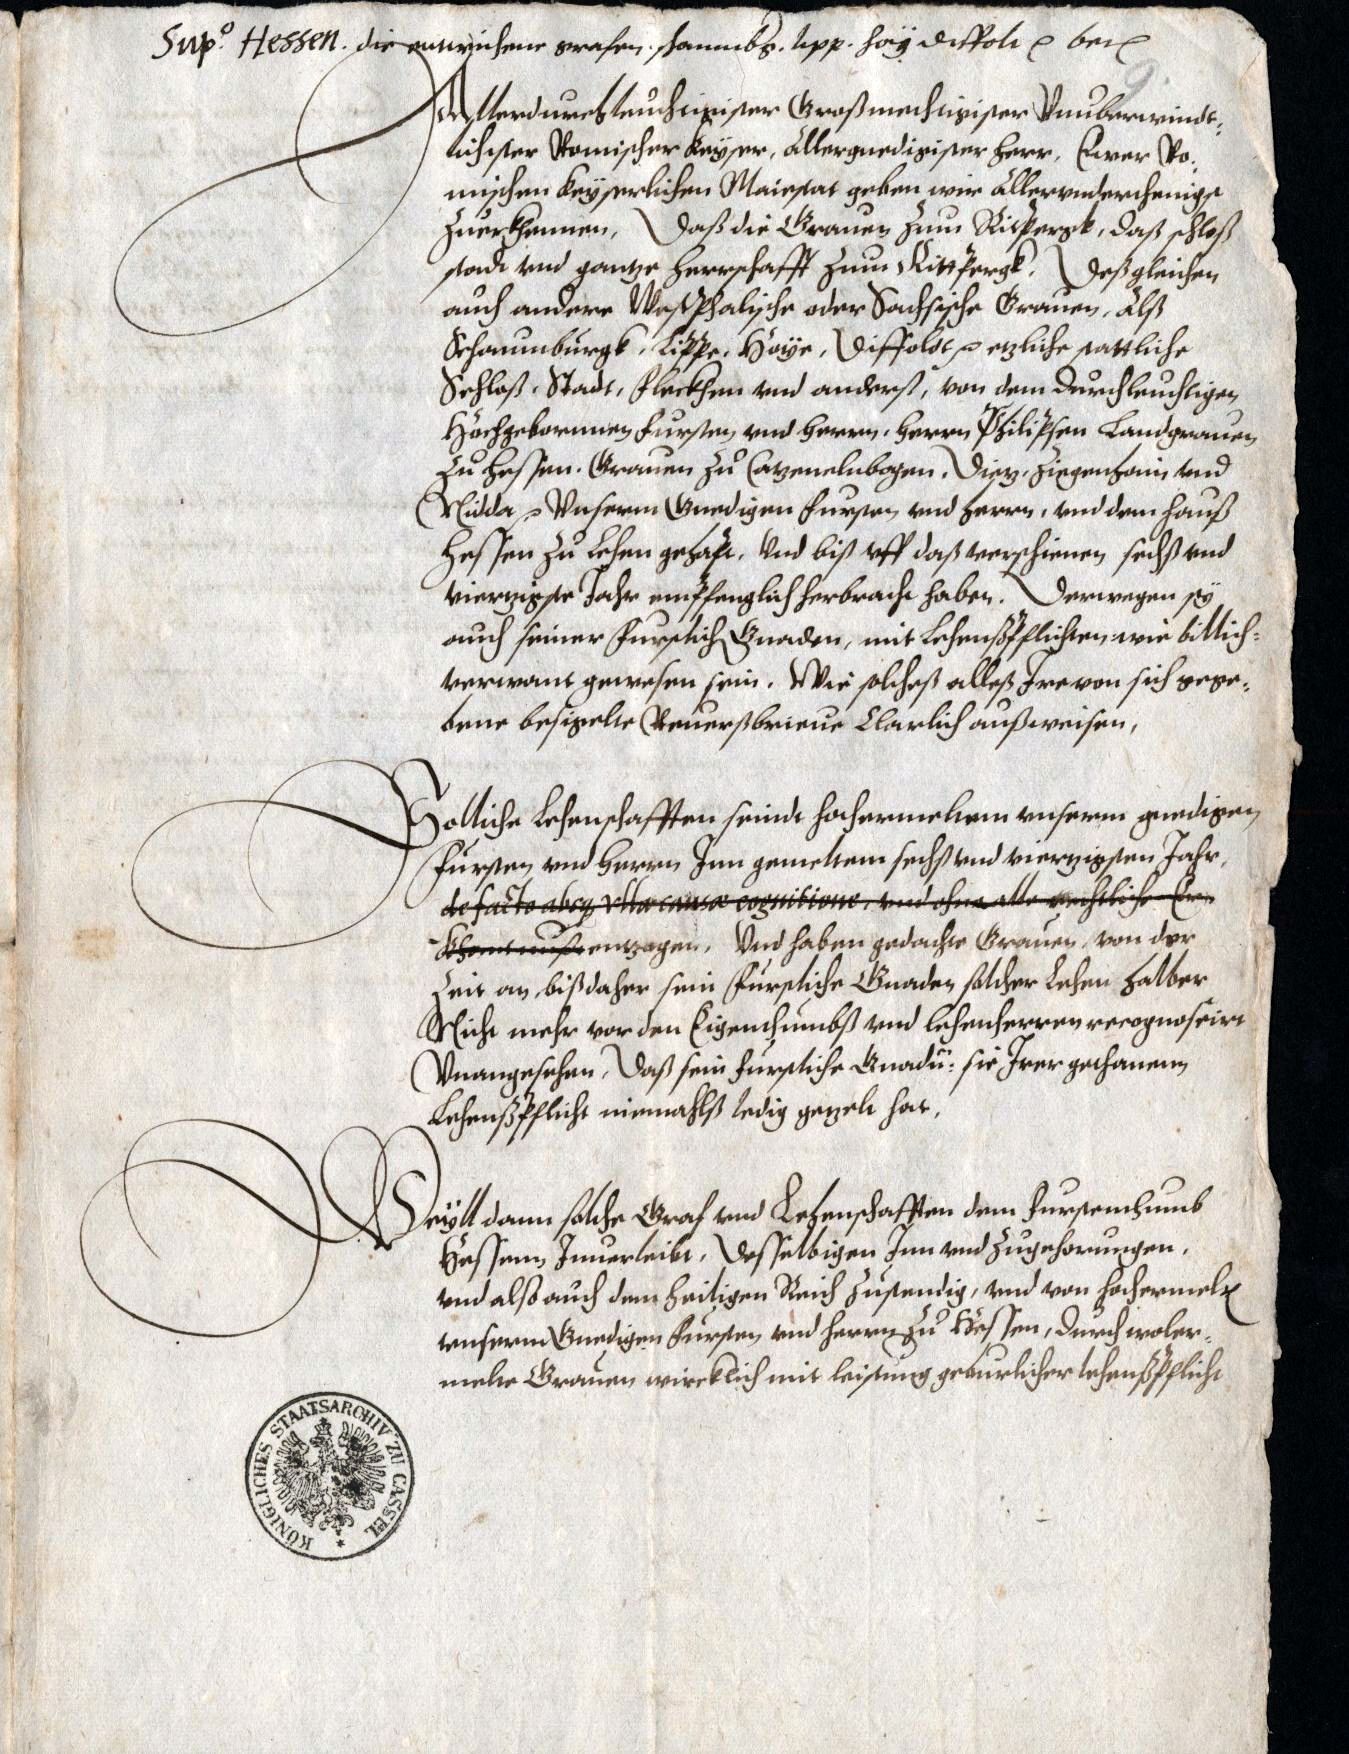 Sup.o Hessen. die entwichene grafen. schaumbg. lipp. hoÿ diffolt
Allerdurchleuchtigister Großmechtigister Vnuberwindt-
lichster Romischer Keÿser, Allergnedigister Herr, Ewer Ro-
mischen Keÿserlichen Maiestat geben wir Allervnderthenigst
Zuerkhennen, Daß die Grauen Zum Rittpergk, daß schloß
stadt vnd gantze Herrschafft Zum Rittpergk. Deßgleichen
auch andere Westphalische oder Sachsische Grauen, Alß
Schaumburgk, Lippe, Hoÿe, Diffoldt etzliche stattliche
Schloß, Stadt, Fleckhen vnd anderß, von dem Durchleuchtigen
Hochgebornnen Fursten vnd Herrn, Herrn Philipsen Landgrauen
Zu Hessen, Grauen Zu Catzenelnbogen, Dietz, Ziegenhain vnd
Nidda Vnserm Gnedigen Fursten vnd Herrn, vnd dem hauß
Hessen Zu Lehen gehapt, Vnd biß vff daß verschienen sechß vnd
viertzigste Jahr empfenglich herbracht haben. Derwegen sÿ
auch seiner Furstlich Gnaden, mit Lehenßpflichten wie billich-
verwant gewesen sein. Wie solcheß alleß Ire von sich gege-
bene besigelte Reuerßbrieue Clarlich außweisen,
Solliche Lehenschafften seindt hochermeltem vnserm gnedigen
Fursten vnd Herrn Inn gemeltem sechß vnd viertzigsten Jahr,
de facto absq vlla causæ cognitione, vnd ohne alle rechtliche Er-
khantnuß entzogen, Vnd haben gedachte Grauen, von der
Zeit an, biß daher sein Furstliche Gnaden solcher Lehen halber
Nicht mehr vor den Eigenthumbß vnd Lehenherren recognoscirt
Vnangesehen, Daß sein Furstliche Gnadn: sie Irer gethanenn
Lehenßpflicht niemahlß ledig getzelt hat,
Weÿll dann solche Graf vnd Lehenschafften dem Furstenthumb
Hessenn Innerleibt, Desselbigen Inn vnd Zugehorungen,
vnd also auch dem Heiligen Reich Zustendig, vnd von hochermelt
vnserm Gnedigen Fursten vnd Herrn Zu Hessen, durch woler-
melte Grauen wircklich mit leistung geburlicher lehenßpflicht
KÖNIGLICHES STAATSARCHIV ZU CASSEL